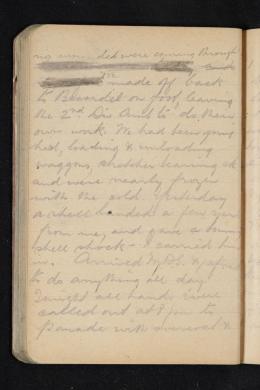 no wounded were coming through
We made off back
to on foot, leaving
the 2nd Div. Amb. to do their
own work. We had been going
hard, loading & unloading
waggons, stretcher bearing etc
and were nearly frozen
with the cold. Yesterday
a shell landed a few yds
from me, and gave a
shell shock - I carried him
in. Arrived &
to do anything all day.
Tonight all hands were
called out at 9 pm to
parade with overcoat &